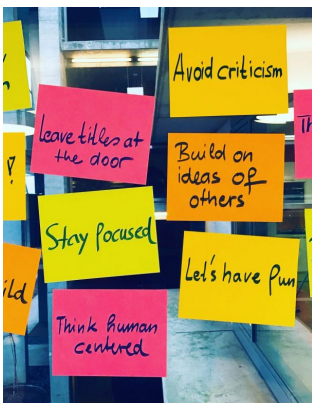 Avoid criticism
Leave titles at
the door
Build on
ideas of
others
Stay focused
Let's have fun
Think human
centered